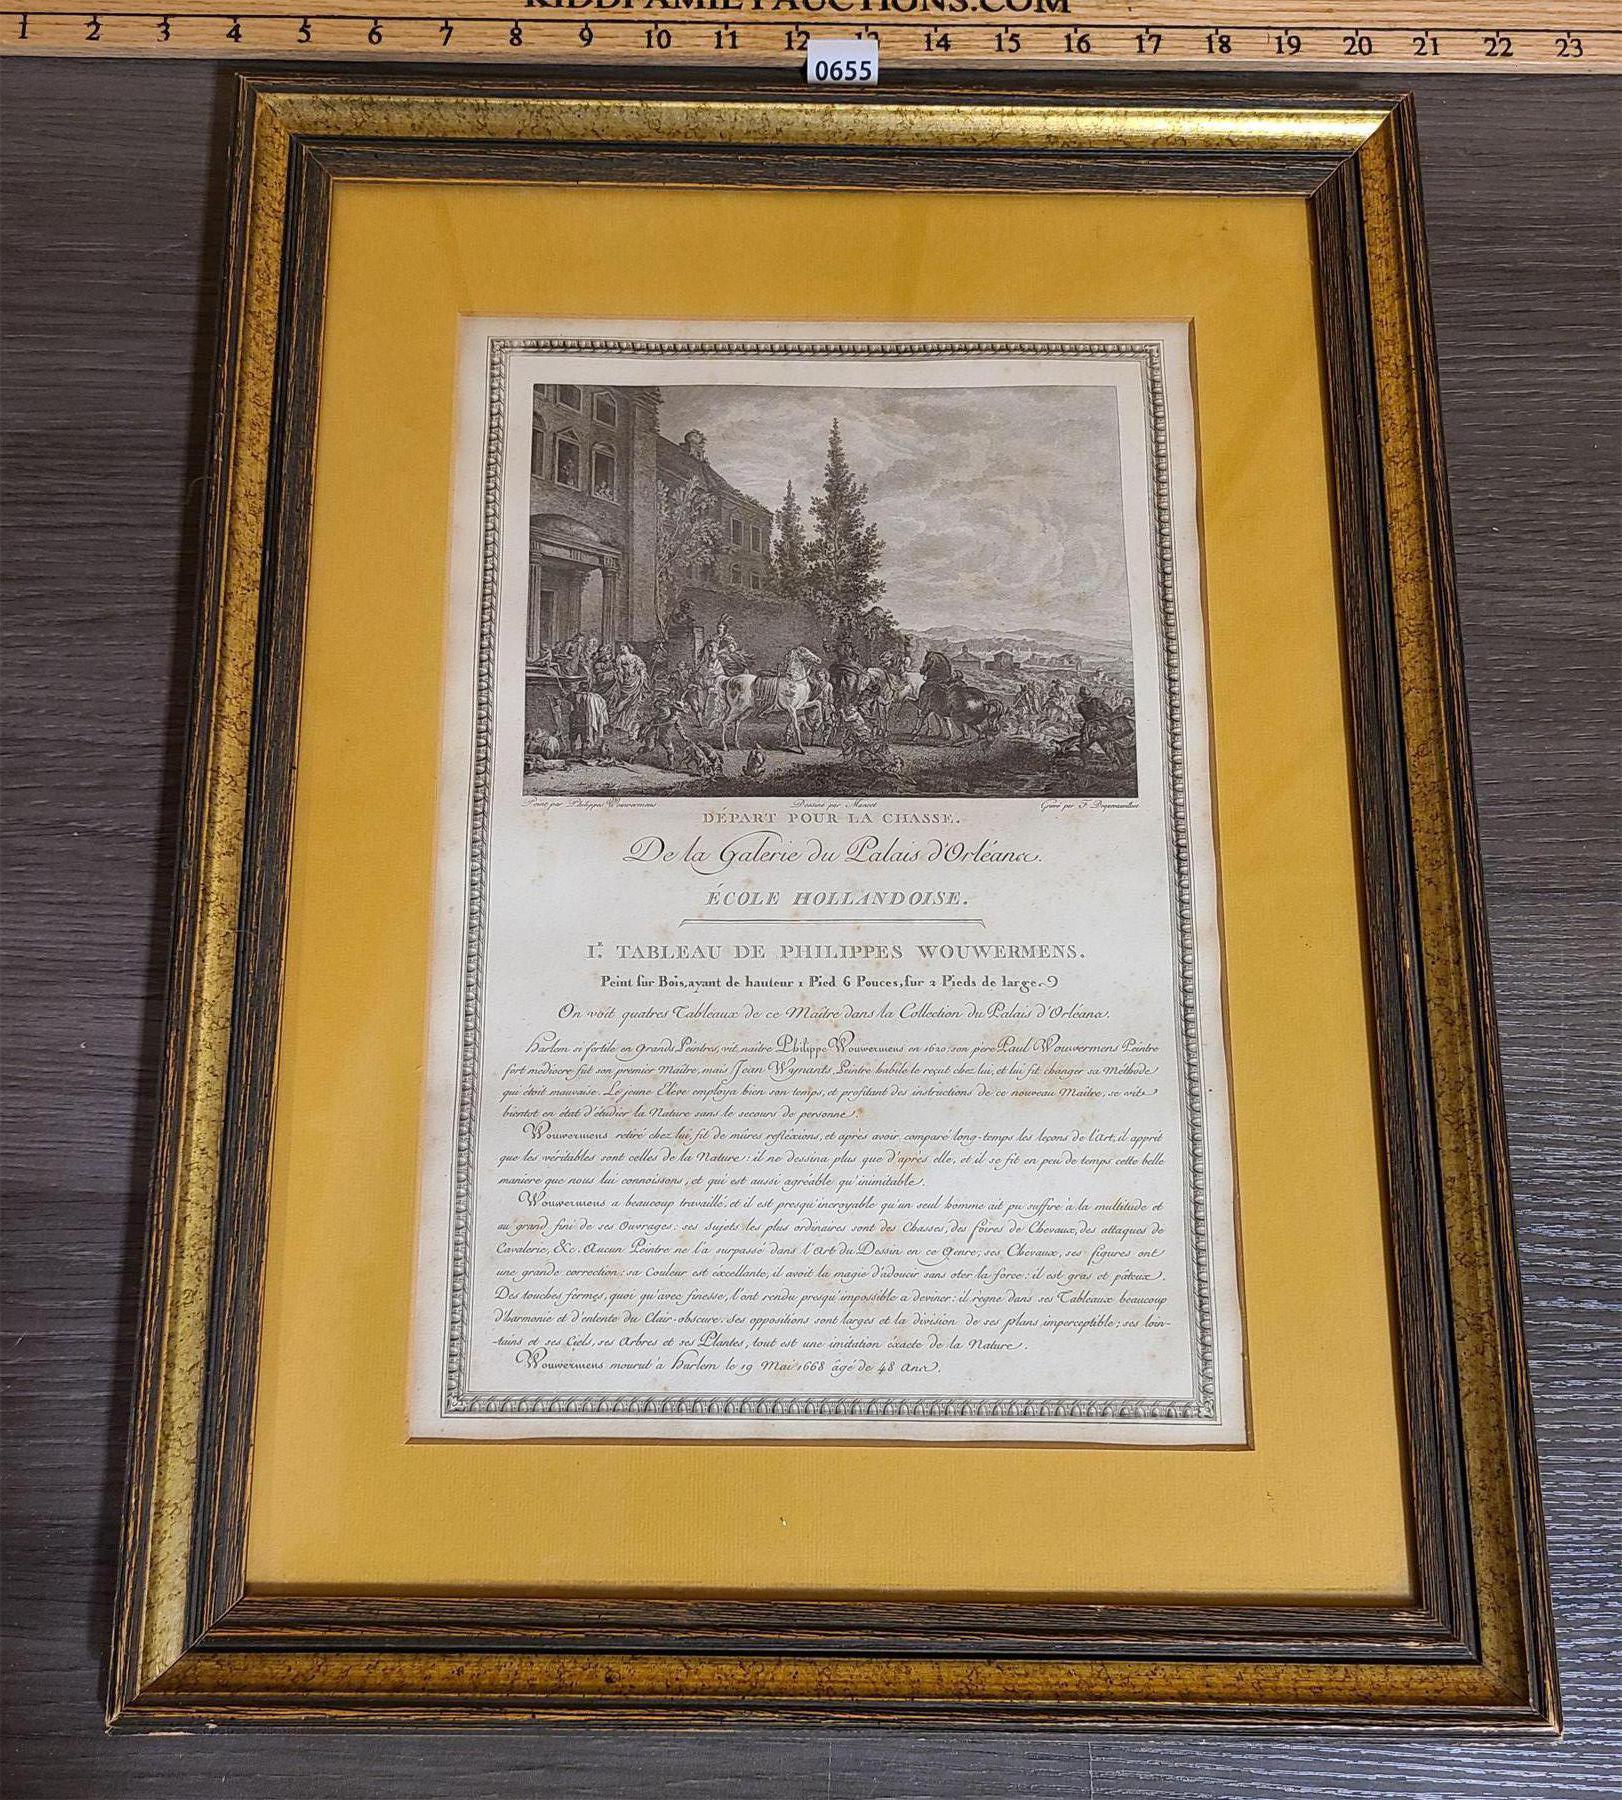 KIDDFAMILYAUCTIONS.COM
1 2 3 4 5 6 7 8 9 10 11 12 13 14 15 16 17 18 19 20 21 22 23
0655
Peint par Philippes Wouwermens Dessiné par Gravé par F.
DÉPART POUR LA CHASSE.
De la Galerie du Palais d'Orléans.
ÉCOLE HOLLANDOISE.
I.r TABLEAU DE PHILIPPES WOUWERMENS.
Peint sur Bois, ayant de hauteur 1 Pied 6 Pouces, sur 2 Pieds de large.
On voit quatres Tableaux de ce Maître dans la Collection du Palais d'Orléans.
Harlem si fertile en Grands Peintres, vit naître Philippe Wouwermens en 1620: son père Paul Wouwermens Peintre
fort médiocre fut son premier Maître, mais Jean Wynants, Peintre habile le reçut chez lui, et lui fit changer sa Méthode
qui étoit mauvaise. Le jeune Elève employa bien son temps, et profitant des instructions de ce nouveau Maître, se vit
bientot en état d'étudier la Nature sans le secours de personne.
Wouwermens retiré chez lui, fit de mûres refléxions, et après avoir comparé long-temps les leçons de l'Art, il apprit
que les véritables sont celles de la Nature: il ne dessina plus que d'après elle, et il se fit en peu de temps cette belle
maniere que nous lui connoissons, et qui est aussi agréable qu'inimitable.
Wouwermens a beaucoup travaillé, et il est presqu'incroyable qu'un seul homme ait pu suffire à la multitude et
au grand fini de ses Ouvrages: ses sujets les plus ordinaires sont des Chasses, des foires de Chevaux, des attaques de
Cavalerie, &c. Aucun Peintre ne l'a surpassé dans l'Art du Dessin en ce Genre; ses Chevaux, ses figures ont
une grande correction: sa Couleur est éxcellante, il avoit la magie d'adoucir sans oter la force: il est gras et pâteux.
Des touches fermes, quoi qu'avec finesse, l'ont rendu presqu'impossible a deviner: il règne dans ses Tableaux beaucoup
d'harmonie et d'entente du Clair-obscure. Ses oppositions sont larges et la division de ses plans imperceptible; ses loin-
-tains et ses Ciels, ses Arbres et ses Plantes, tout est une imitation éxacte de la Nature.
Wouwermens mourut à Harlem le 19 Mai 1668 âgé de 48 Ans.